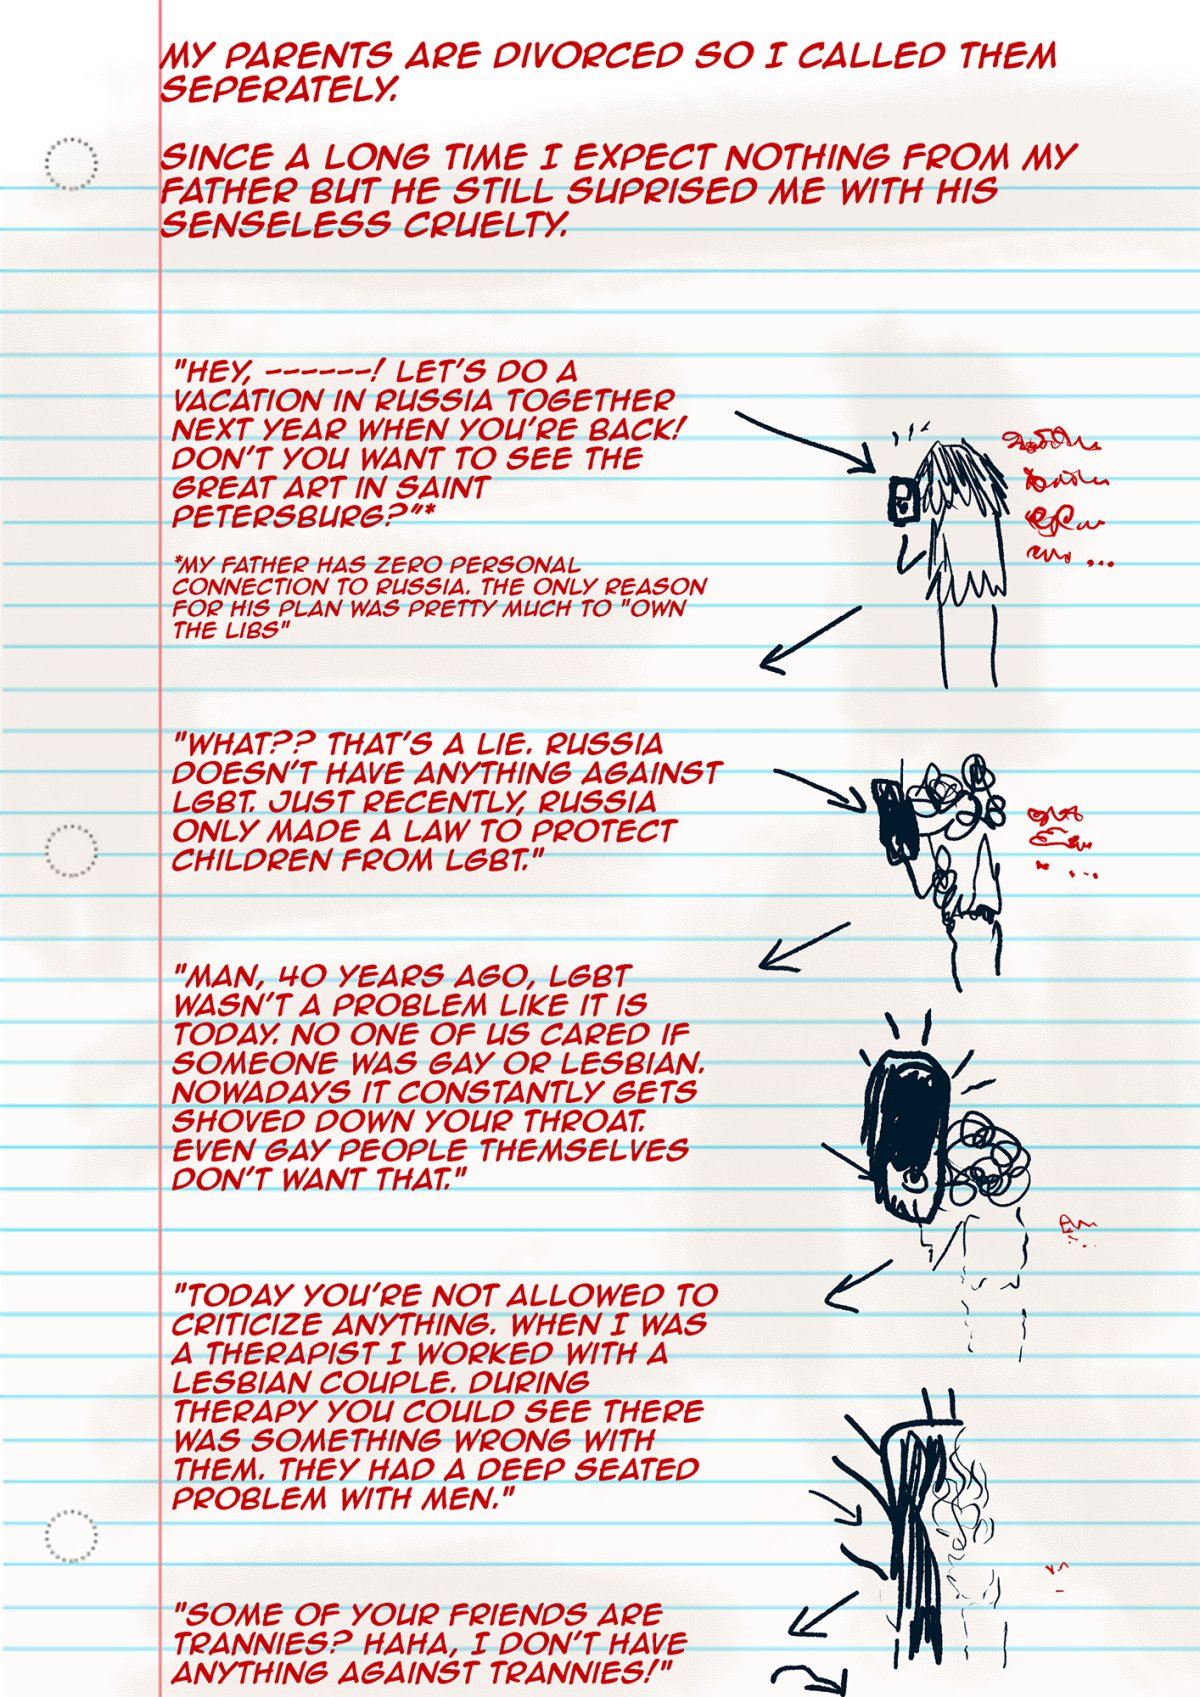 MY PARENTS ARE DIVORCED SO I CALLED THEM
SEPERATELY.
SINCE A LONG TIME I EXPECT NOTHING FROM MY
FATHER BUT HE STILL SUPRISED ME WITH HIS
SENSELESS CRUELTY.
"HEY, ------! LET'S DO A
VACATION IN RUSSIA TOGETHER
NEXT YEAR WHEN YOU'RE BACK!
DON'T YOU WANT TO SEE THE
GREAT ART IN SAINT
PETERSBURG?"*
*MY FATHER HAS ZERO PERSONAL
CONNECTION TO RUSSIA. THE ONLY REASON
FOR HIS PLAN WAS PRETTY MUCH TO "OWN
THE LIBS"
"WHAT?? THAT'S A LIE. RUSSIA
DOESN'T HAVE ANYTHING AGAINST
LGBT. JUST RECENTLY, RUSSIA
ONLY MADE A LAW TO PROTECT
CHILDREN FROM LGBT."
"MAN, 40 YEARS AGO, LGBT
WASN'T A PROBLEM LIKE IT IS
TODAY. NO ONE OF US CARED IF
SOMEONE WAS GAY OR LESBIAN.
NOWADAYS IT CONSTANTLY GETS
SHOVED DOWN YOUR THROAT.
EVEN GAY PEOPLE THEMSELVES
DON'T WANT THAT."
"TODAY YOU'RE NOT ALLOWED TO
CRITICIZE ANYTHING. WHEN I WAS
A THERAPIST I WORKED WITH A
LESBIAN COUPLE. DURING
THERAPY YOU COULD SEE THERE
WAS SOMETHING WRONG WITH
THEM. THEY HAD A DEEP SEATED
PROBLEM WITH MEN."
"SOME OF YOUR FRIENDS ARE
TRANNIES? HAHA, I DON'T HAVE
ANYTHING AGAINST TRANNIES!"